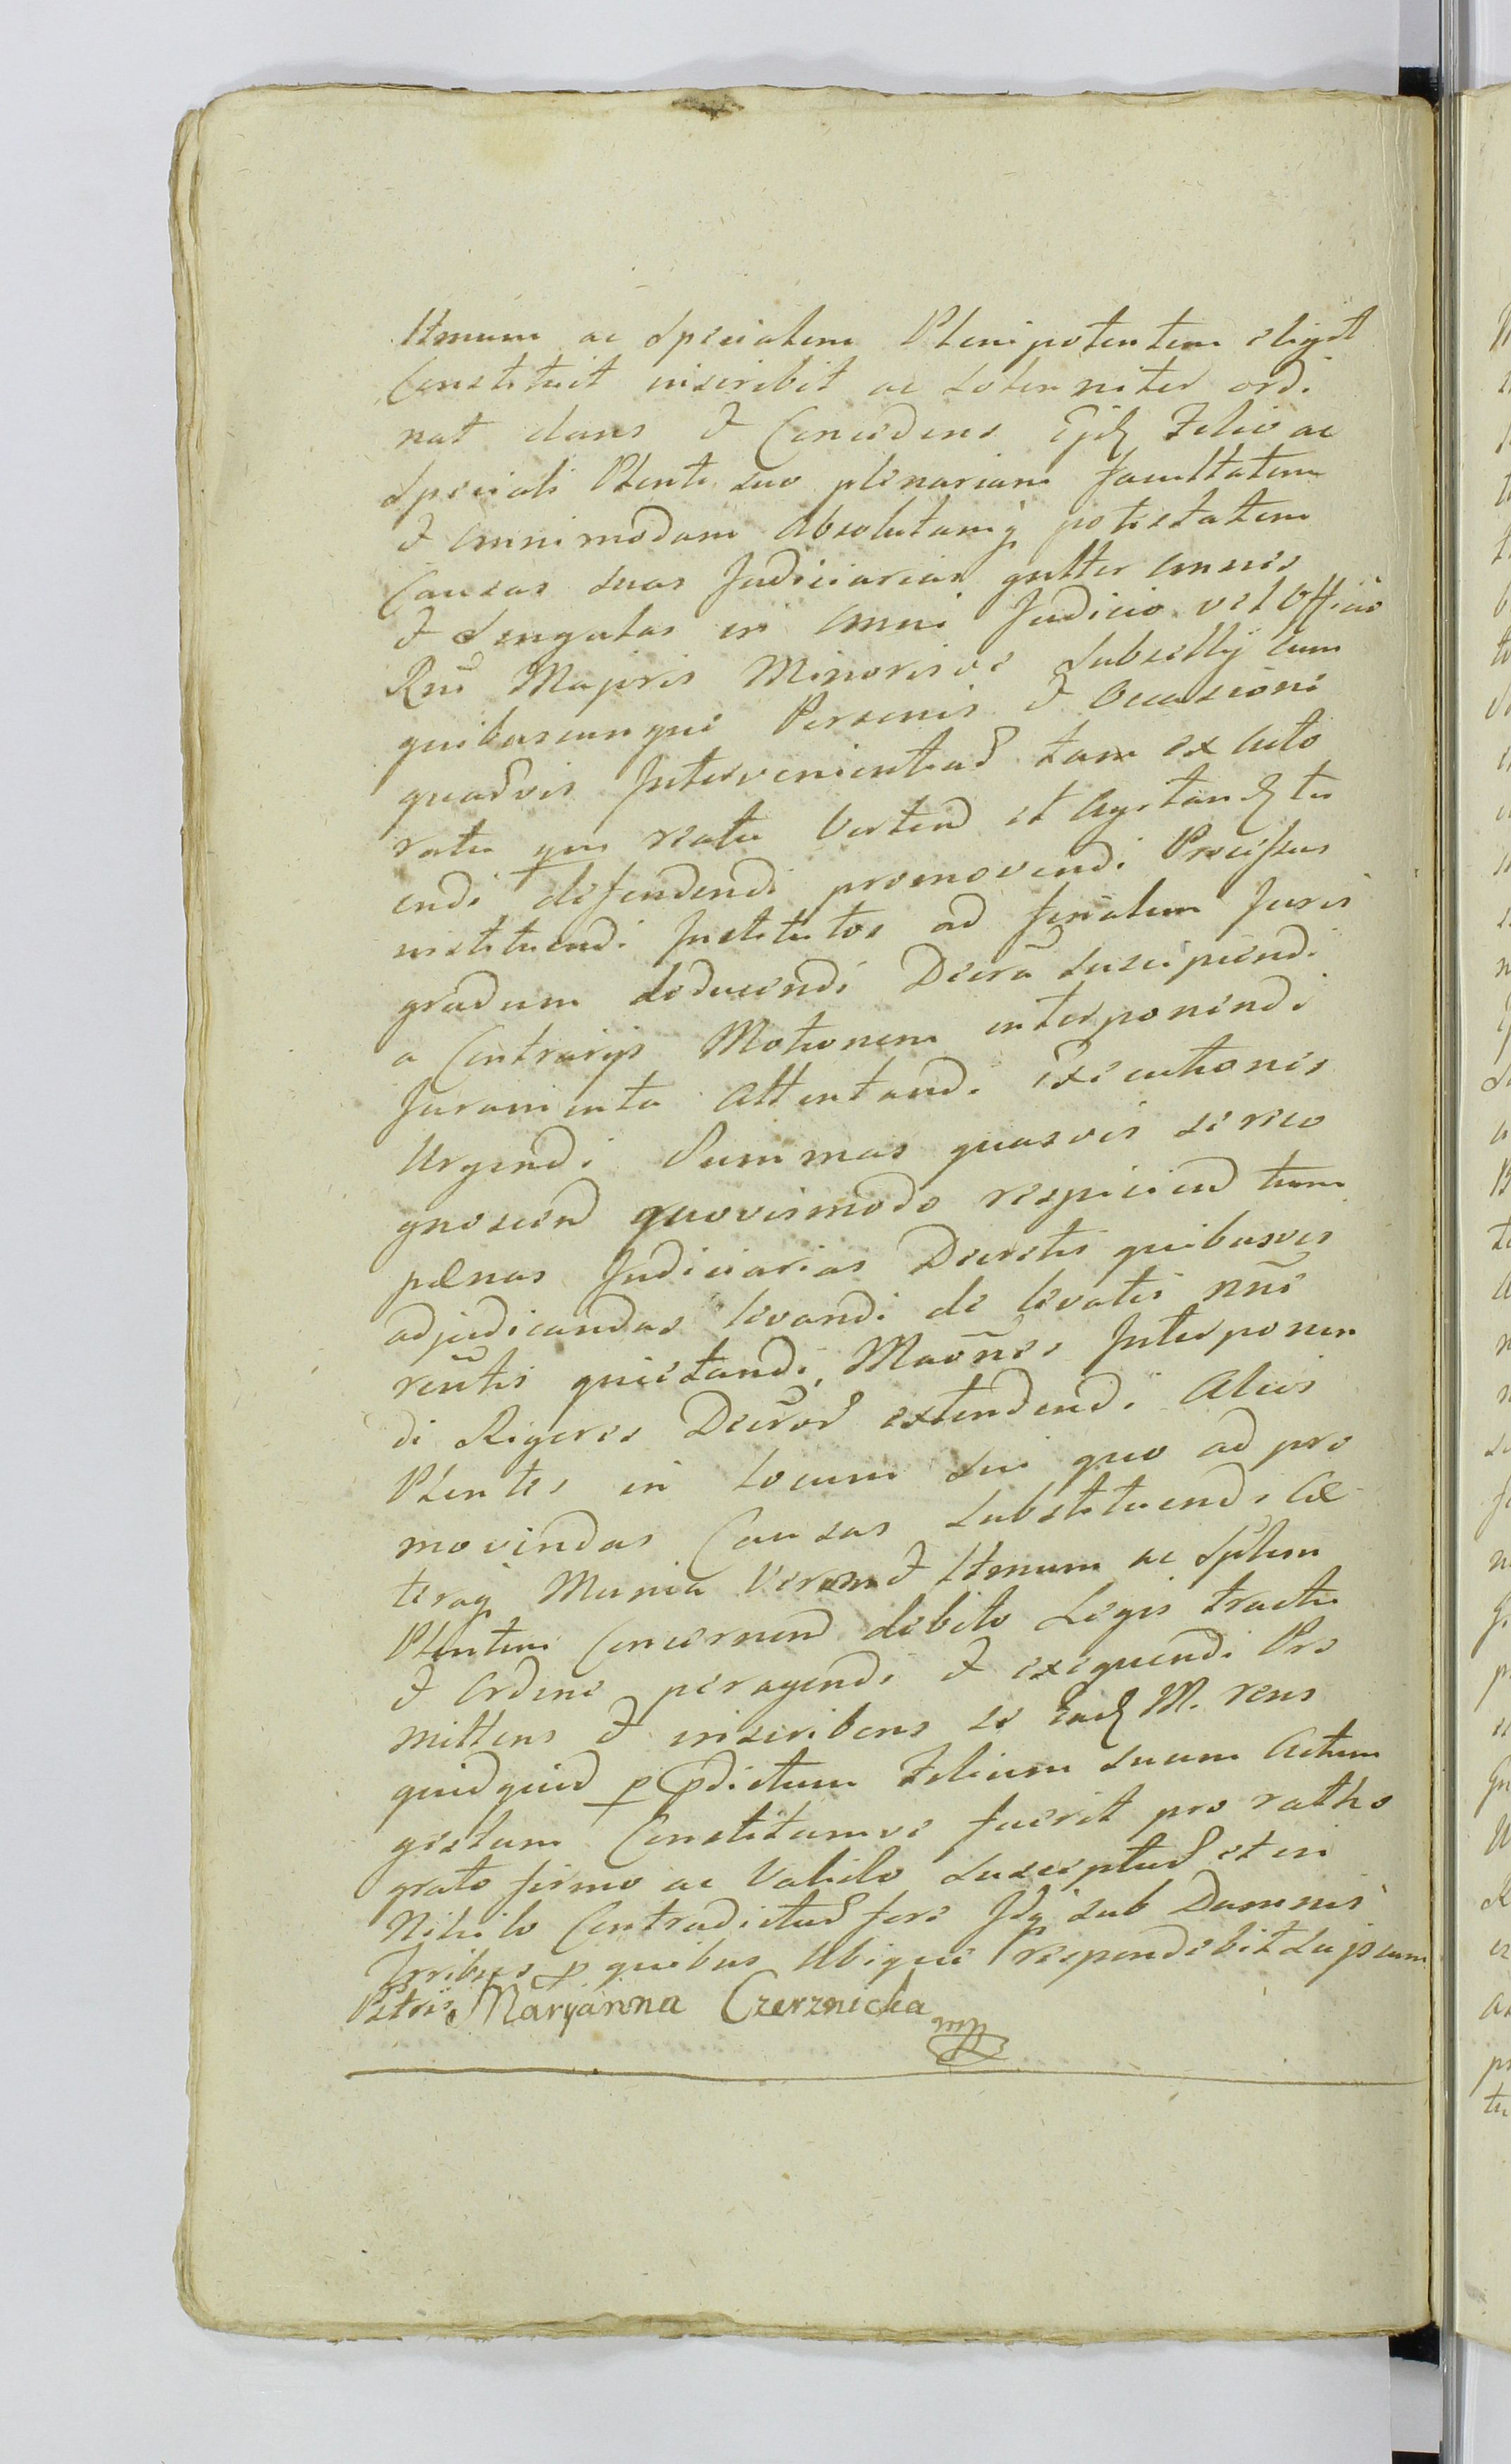 ltmum ac Specialem Plenipotentem eligit
Constituit inscribit ac Solenniter ordi
nat dans & Concedens Ejd Filio ac
Speciali Plenti suo plenariam facultatem
& omnimodam Absolutamq potestatem
Causas suas Judiciarias gnlter omnes
& Singulas in omni Judicio vel Officio
Rni Majoris Minorisve Subsellij cum
quibuscunque Personis & Occasione
quavis Intervenientiad tam ex Acto
ratu qm reatu Vertend et Agitand tu
endi defendendi promovendi Processus
instituendi Institutos ad finalem Juris
gradum deducendi Decra suscipiendi
a Contrariis Motionem interponendi
Juramenta Attentandi Executiones
Urgendi Summas quasvis se reco
gnoscen quovismodo respiciend tum
pænas Judiciarias Decretis quibusvis
adjudicandas levandi de levatis nne
rentis quietandi, Maones Interponen
di Rigores Decror extendendi Alios
Plentes in Locum Sui quo ad pro
movendas Causas Substituendi Cæ
teraq Munia Verum & ltmum ac Splem
Plentem Concernend debito Legis tractu
& Ordine peragendi & exequendi Pro
mittens & inscribens se Ead M. rens
quidquid p pdictum Filium suum Actum
gestum Constitumve fuerit pro ratho
grato firmo ac Valido Suscepturd et in
Nihilo Contradicturd fore Idq sub Damnis
Trribus p quibus Ubique respondebit Su ipsum
Pttris Maryanna Czerznicka mp